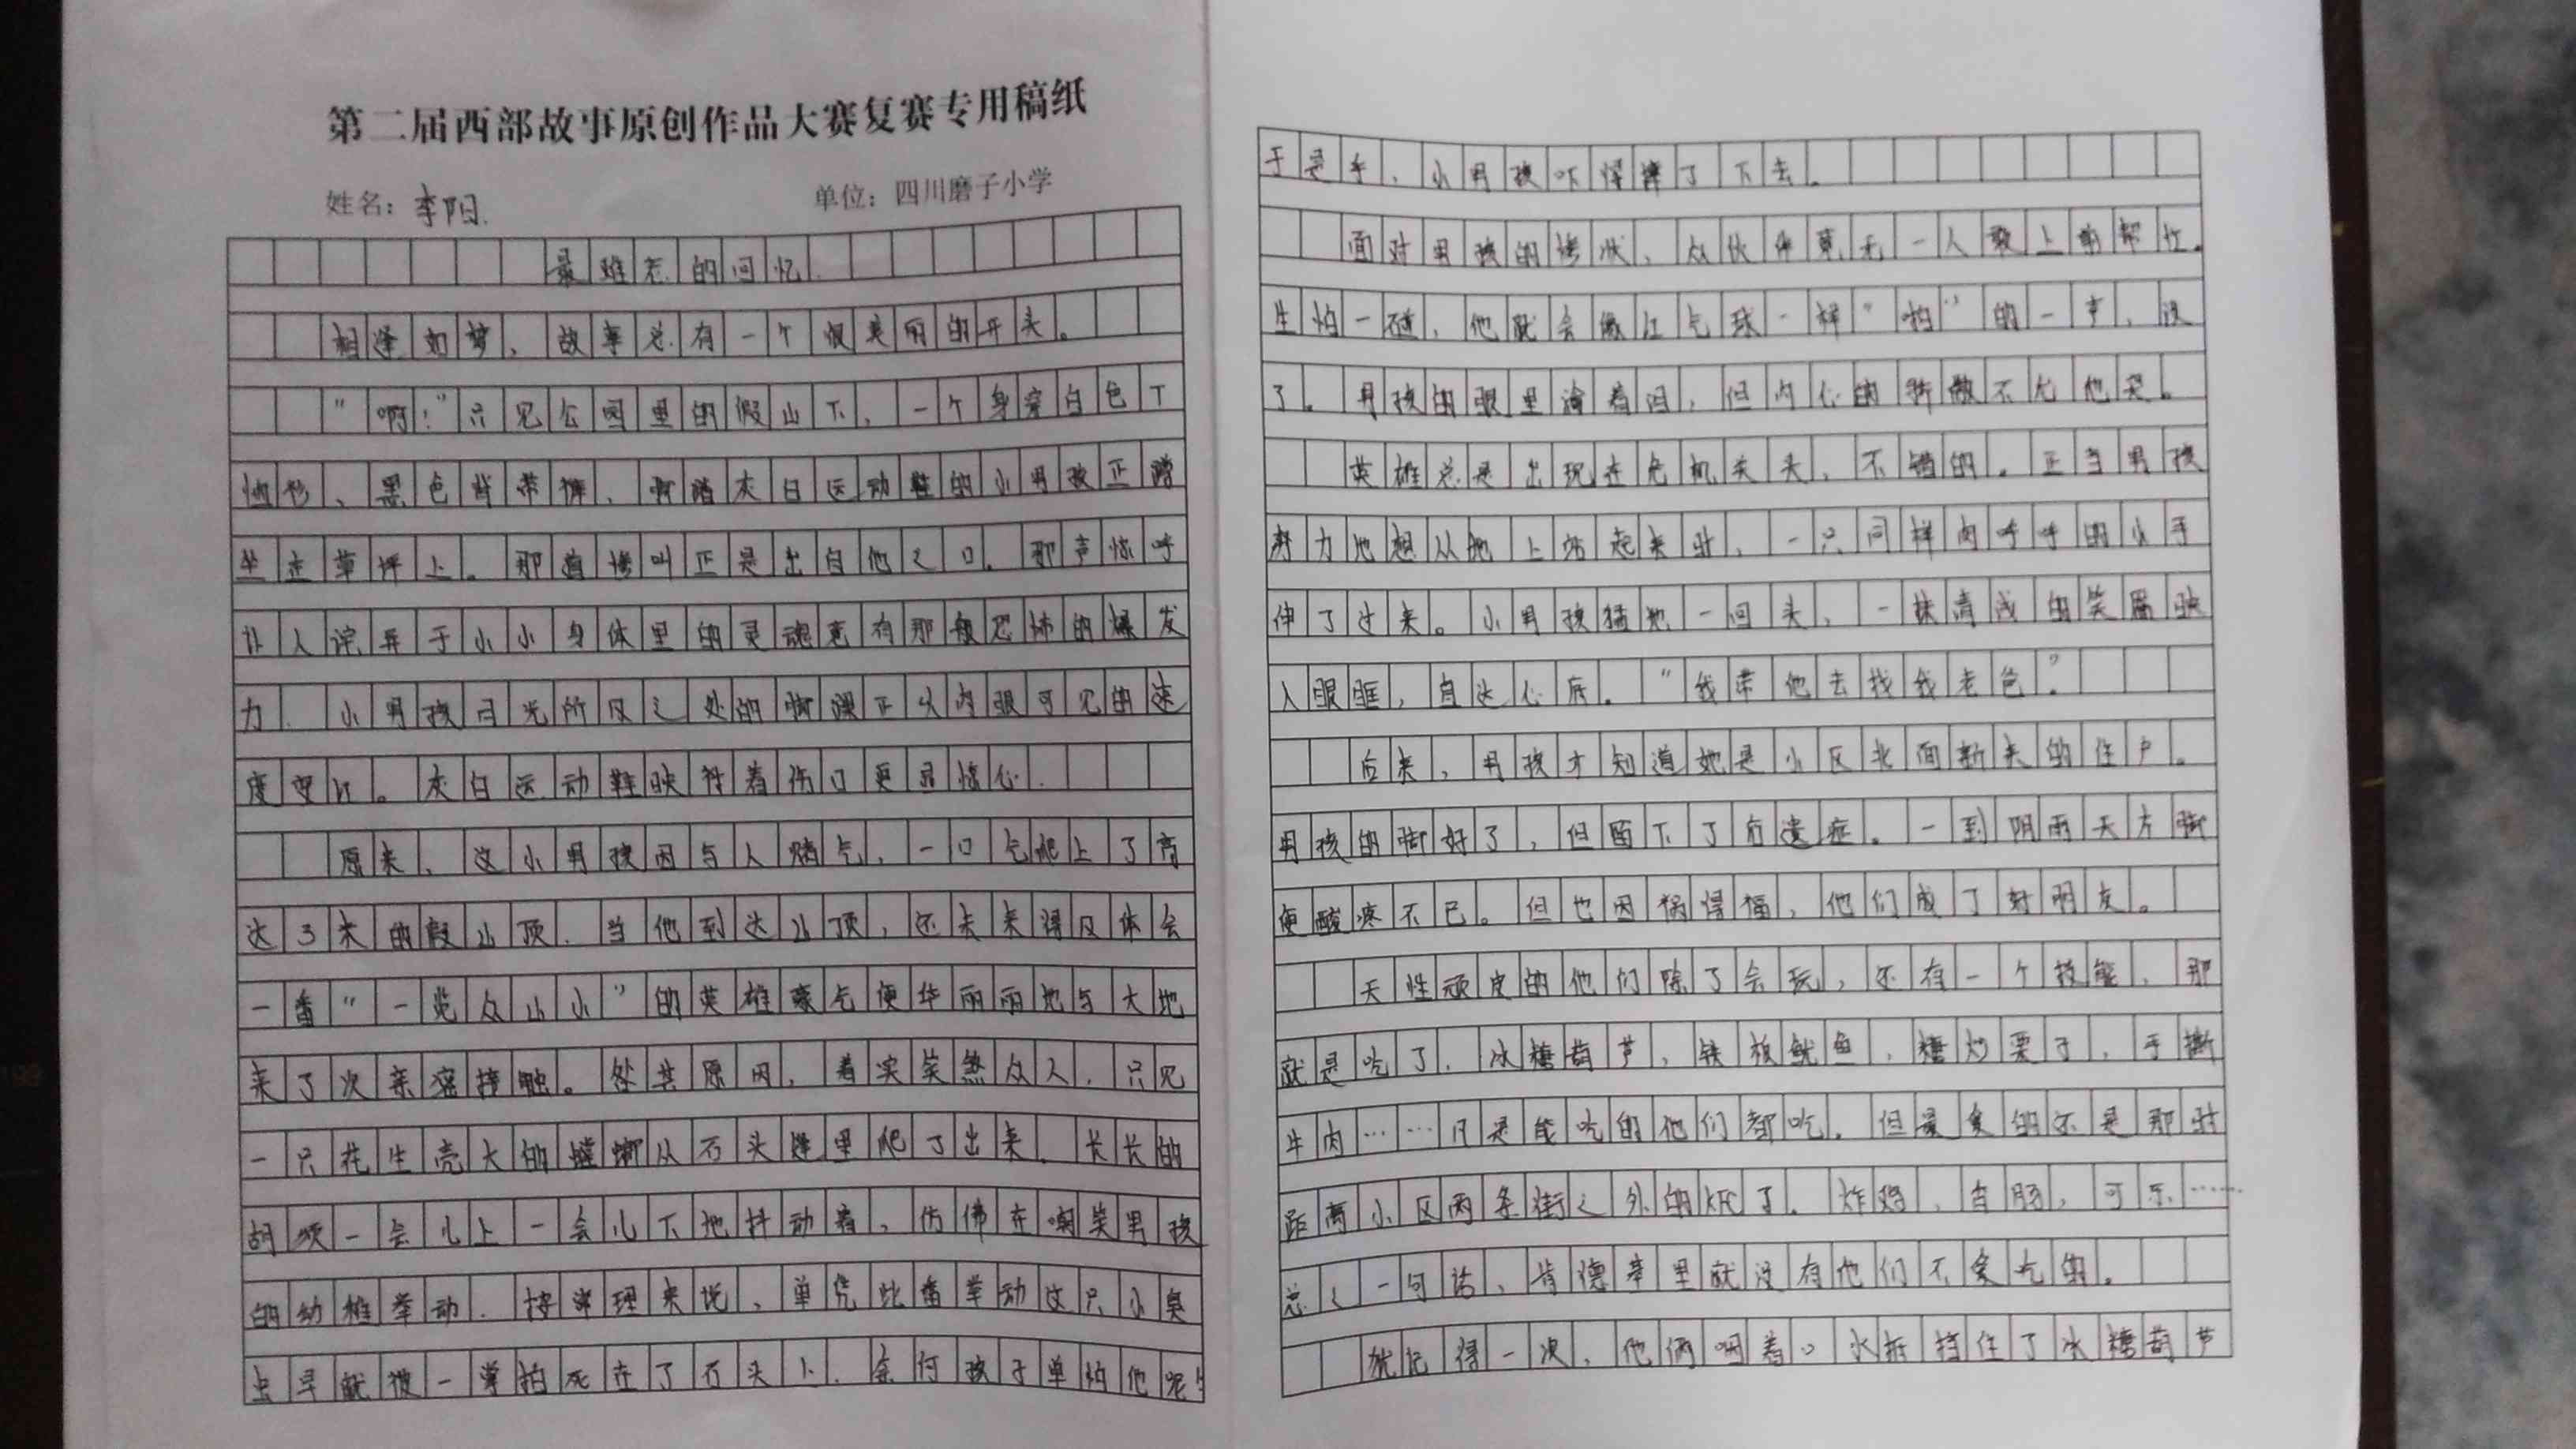 第二届西部故事原创作品大赛复赛专用稿纸
姓名：李阳.
单位：四川磨子小学
最难忘的回忆.
相逢如梦，故事总有一个很美丽的开头。
“啊！”只见公园里的假山下，一个身穿白色T
恤衫、黑色背带裤、脚踏灰白运动鞋的小男孩正蹲
坐在草坪上。那道惨叫正是出自他之口。那声惊呼
让人诧异于小小身体里的灵魂竟有那般恐怖的爆发
力.小男孩目光所及之处的脚踝正以肉眼可见的速
度变红。灰白运动鞋映衬着伤口更显惊心.
原来，这小男孩因与人赌气，一口气爬上了高
达3米的假山顶.当他到达山顶，还未来得及体会
一番“一览众山小”的英雄豪气便华丽丽地与大地
来了次亲密接触。究其原因，着实笑煞众人.只见
一只花生壳大的蟑螂从石头缝里爬了出来.长长的
胡须一会儿上一会儿下地抖动着，仿佛在嘲笑男孩
的幼稚举动.按常理来说，单凭此番举动这只小臭
虫早就被一掌拍死在了石头上.奈何孩子单怕他呢！
于是乎，小男孩吓得摔了下去.
面对男孩的惨状，众伙伴竟无一人敢上前帮忙.
生怕一碰，他就会像红气球一样“啪”的一声，没
了。男孩的眼里滴着泪，但内心的骄傲不允他哭。
英雄总是出现在危机关头，不错的。正当男孩
努力地想从地上站起来时，一只同样肉呼呼的小手
伸了过来。小男孩猛地一回头，一抹清浅的笑靥映
入眼眶，直达心底。“我带他去找我老爸”.
后来，男孩才知道她是小区北面新来的住户。
男孩的脚好了，但留下了后遗症。一到阴雨天左脚
便酸疼不已。但也因祸得福，他们成了好朋友。
天性顽皮的他们除了会玩，还有一个技能，那
就是吃了.冰糖葫芦，铁板鱿鱼，糖炒栗子，手撕
牛肉……凡是能吃的他们都吃.但最爱的还是那时
距离小区两条街之外的KFC了.炸鸡，鸡肠，可乐……
总之一句话，肯德基里就没有他们不爱吃的.
犹记得一次，他俩咽着口水拦挡住了冰糖葫芦